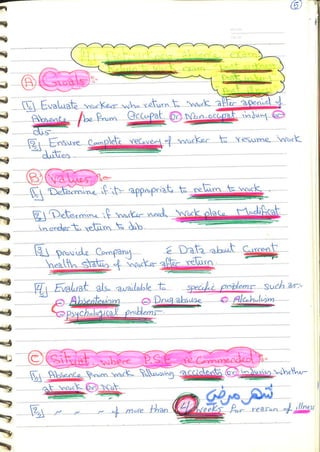 ⑤
Return to work exam
Ⓐ Goals:-
1 Evaluate workers who return to work after a period of
Absence / be from Occupat or Non.occupat injury or
dis-
2 Ensure complete recovery of worker to resume work
duties.
Ⓑ Values:-
1 Determine if it's appropriate to return to work.
2 Determine if worker need work place Modificat
in order to return to job.
3 provide Company & Data about Current
health status of worker after return
4 Evaluat als available to specific problems such as:
Absenteeism Drug abuse Alcoholism
psychological problems
Ⓒ Situat where PSE recommended:-
1 Absence from work following accidents or injuries whether
at work or Not
2 ~ ~ ~ of more than 4 weeks for reason of illness